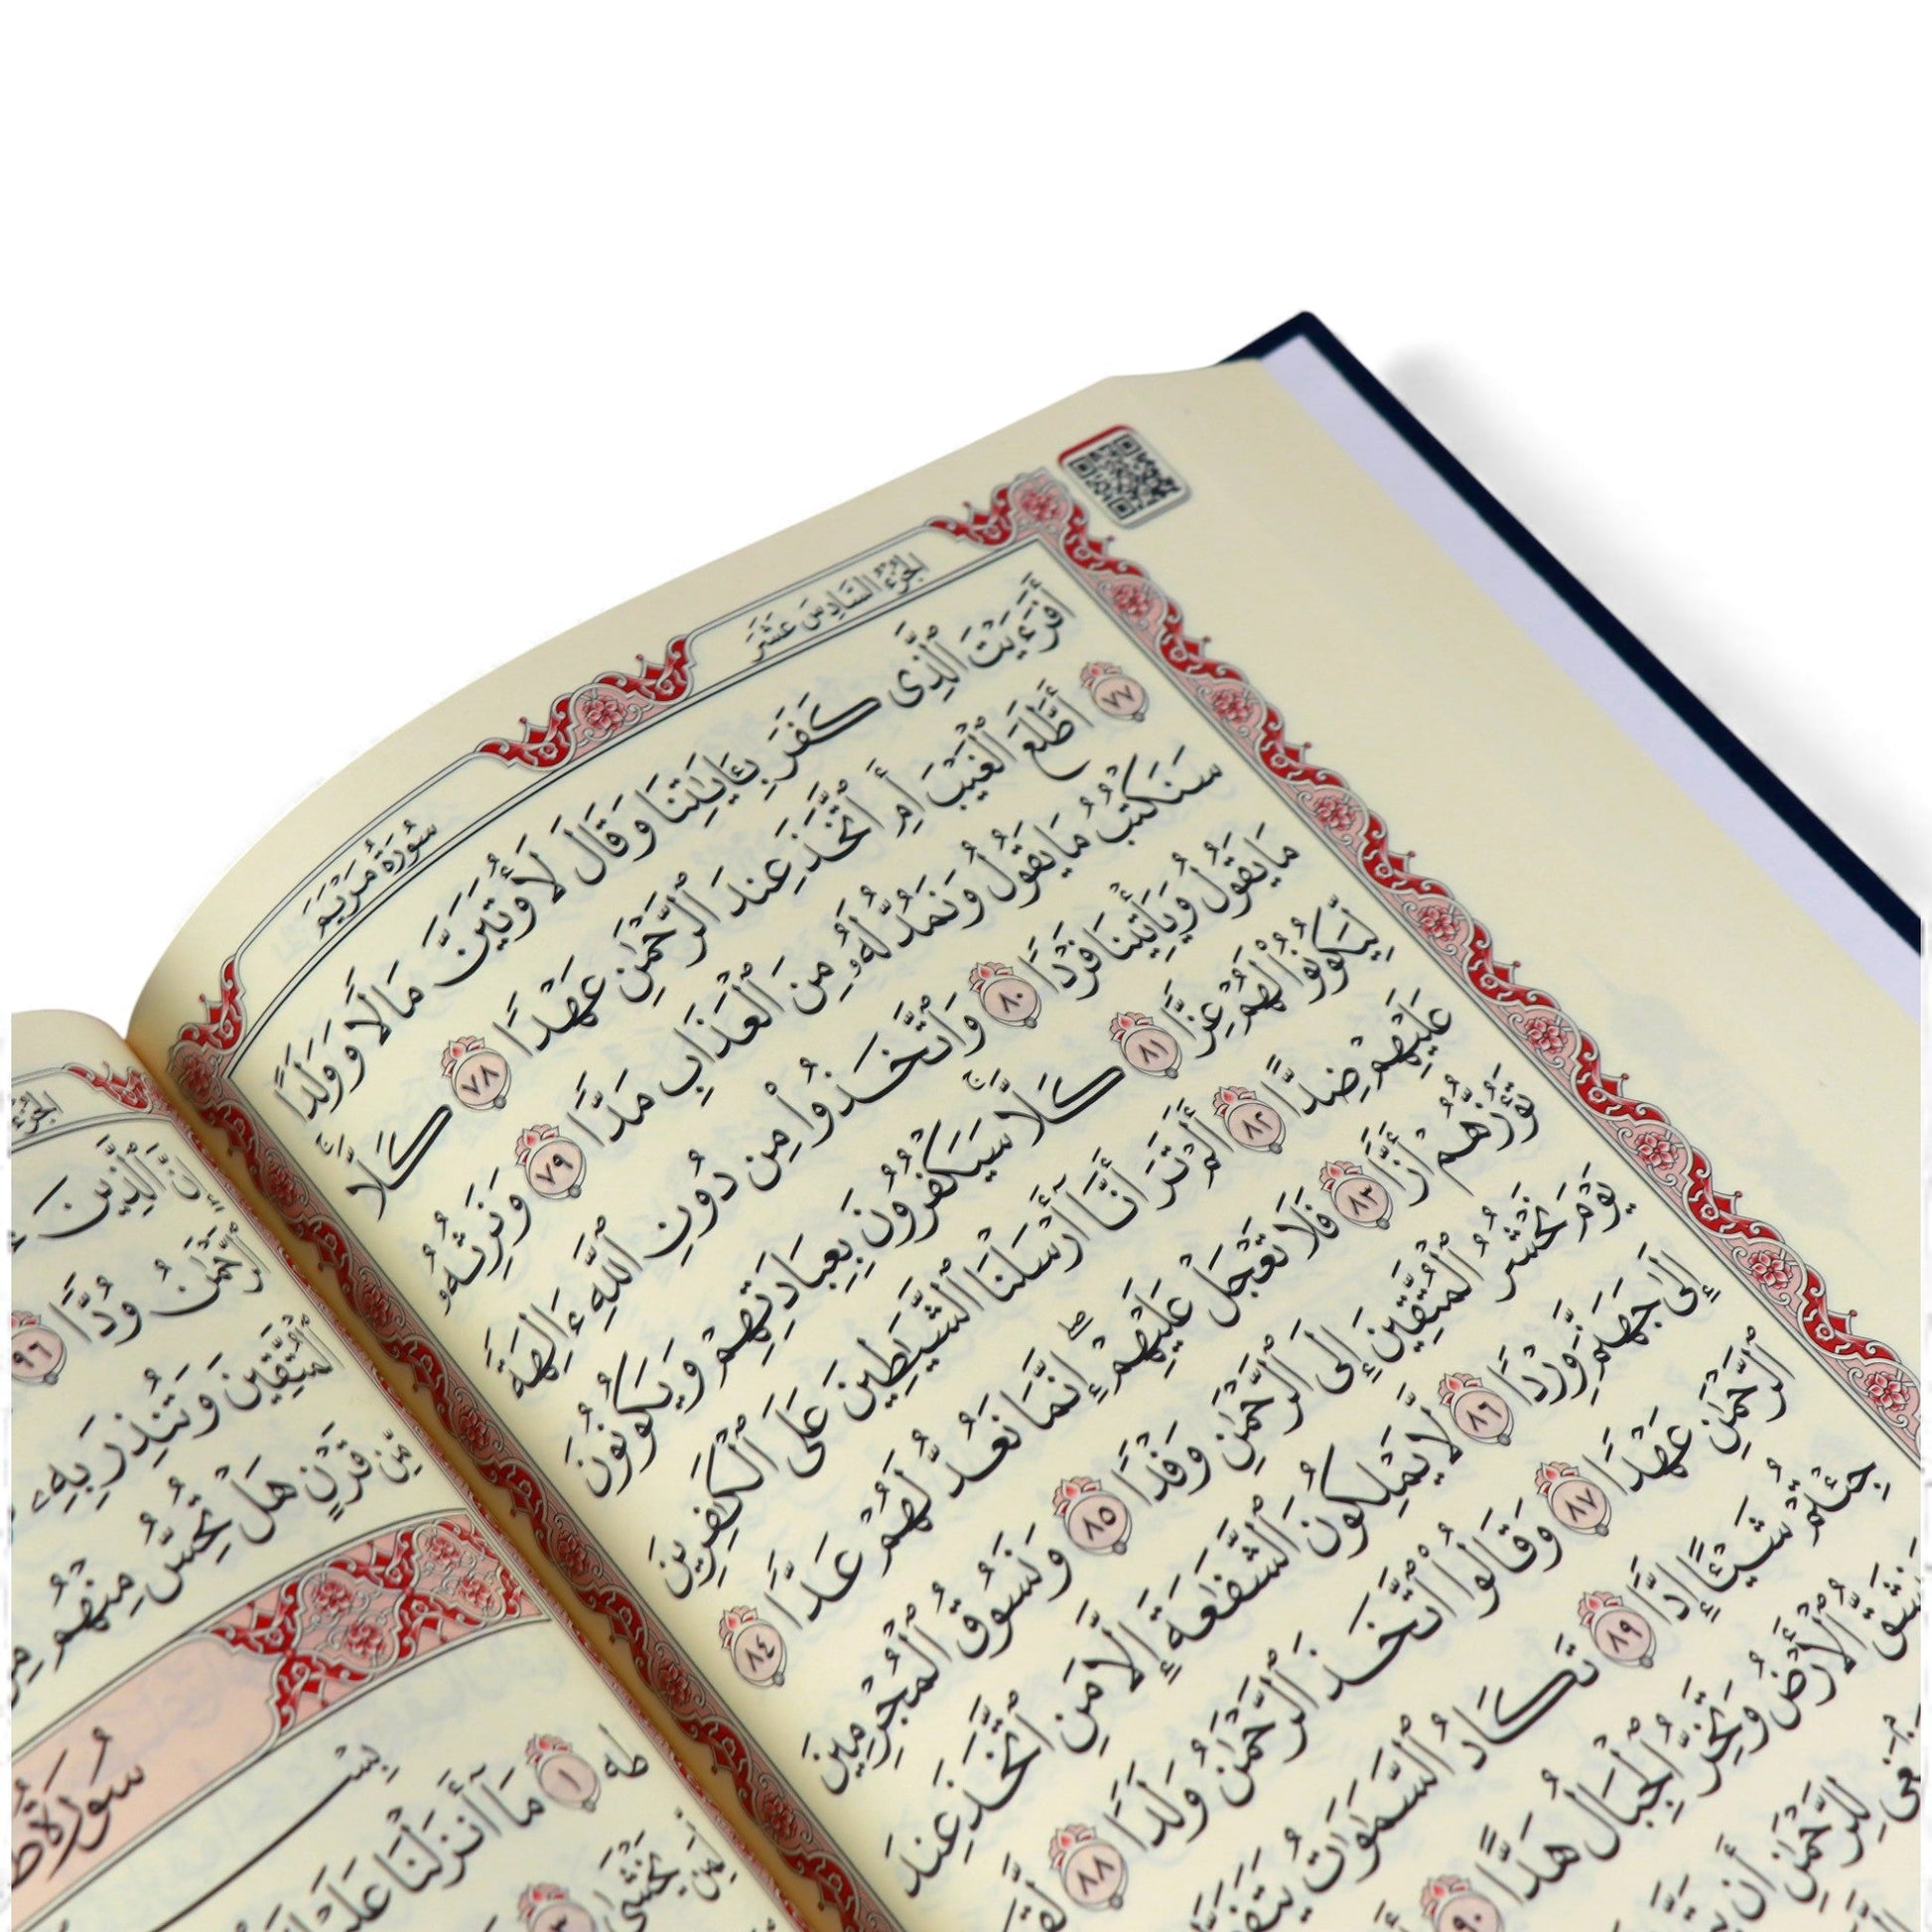 الجُزْءُ السَّادِسَ عَشَرَ
سُورَةُ مَرْيَمَ
أَفَرَءَيْتَ ٱلَّذِى كَفَرَ بِـَٔايَٰتِنَا وَقَالَ لَأُوتَيَنَّ مَالًا وَوَلَدًا
٧٧ أَطَّلَعَ ٱلْغَيْبَ أَمِ ٱتَّخَذَ عِندَ ٱلرَّحْمَٰنِ عَهْدًا ٧٨ كَلَّا
سَنَكْتُبُ مَا يَقُولُ وَنَمُدُّ لَهُۥ مِنَ ٱلْعَذَابِ مَدًّا ٧٩ وَنَرِثُهُۥ
مَا يَقُولُ وَيَأْتِينَا فَرْدًا ٨٠ وَٱتَّخَذُوا۟ مِن دُونِ ٱللَّهِ ءَالِهَةً
لِّيَكُونُوا۟ لَهُمْ عِزًّا ٨١ كَلَّا سَيَكْفُرُونَ بِعِبَادَتِهِمْ وَيَكُونُونَ
عَلَيْهِمْ ضِدًّا ٨٢ أَلَمْ تَرَ أَنَّآ أَرْسَلْنَا ٱلشَّيَٰطِينَ عَلَى ٱلْكَٰفِرِينَ
تَؤُزُّهُمْ أَزًّا ٨٣ فَلَا تَعْجَلْ عَلَيْهِمْ إِنَّمَا نَعُدُّ لَهُمْ عَدًّا ٨٤
يَوْمَ نَحْشُرُ ٱلْمُتَّقِينَ إِلَى ٱلرَّحْمَٰنِ وَفْدًا ٨٥ وَنَسُوقُ ٱلْمُجْرِمِينَ
إِلَىٰ جَهَنَّمَ وِرْدًا ٨٦ لَّا يَمْلِكُونَ ٱلشَّفَٰعَةَ إِلَّا مَنِ ٱتَّخَذَ عِندَ
ٱلرَّحْمَٰنِ عَهْدًا ٨٧ وَقَالُوا۟ ٱتَّخَذَ ٱلرَّحْمَٰنُ وَلَدًا ٨٨ لَّقَدْ
جِئْتُمْ شَيْـًٔا إِدًّا ٨٩ تَكَادُ ٱلسَّمَٰوَٰتُ
وَتَنشَقُّ ٱلْأَرْضُ وَتَخِرُّ ٱلْجِبَالُ هَدًّا ٩٠
لِلرَّحْمَٰنِ أَن
ٱلَّذِينَ
ٱلرَّحْمَٰنُ وُدًّا ٩٦
ٱلْمُتَّقِينَ وَتُنذِرَ بِهِۦ
مِّن قَرْنٍ هَلْ تُحِسُّ مِنْهُم
سُورَةُ طه
بِسْمِ
طه ١ مَآ أَنزَلْنَا عَلَيْكَ
يَخْشَىٰ